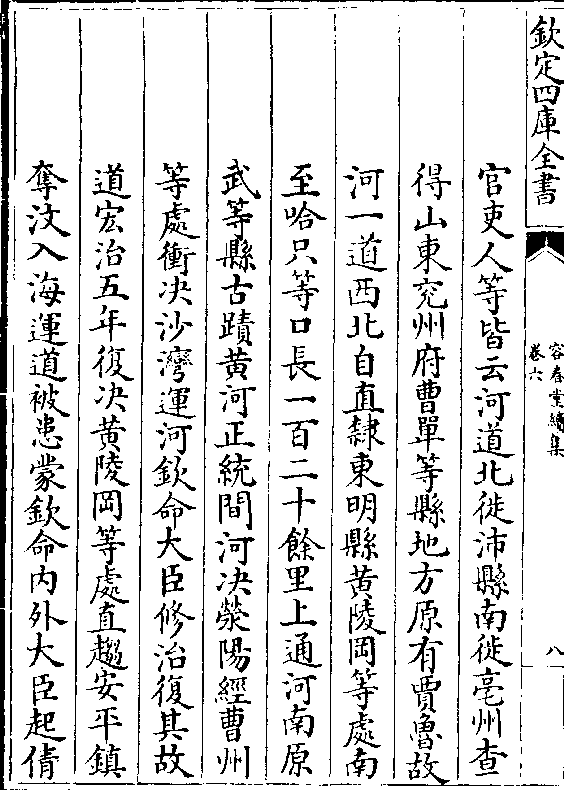 欽定四庫全書
容春堂續集
卷六
八
官吏人等皆云河道北徙沛縣南徙亳州查
得山東兖州府曹單等縣地方原有賈魯故
河一道西北自直隸東明縣黄陵岡等處南
至哈只等口長一百二十餘里上通河南原
武等縣古蹟黄河正統間河决滎陽經曹州
等處衝决沙灣運河欽命大臣修治復其故
道宏治五年復决黄陵岡等處直趨安平鎮
奪汶入海運道被患蒙欽命内外大臣起倩